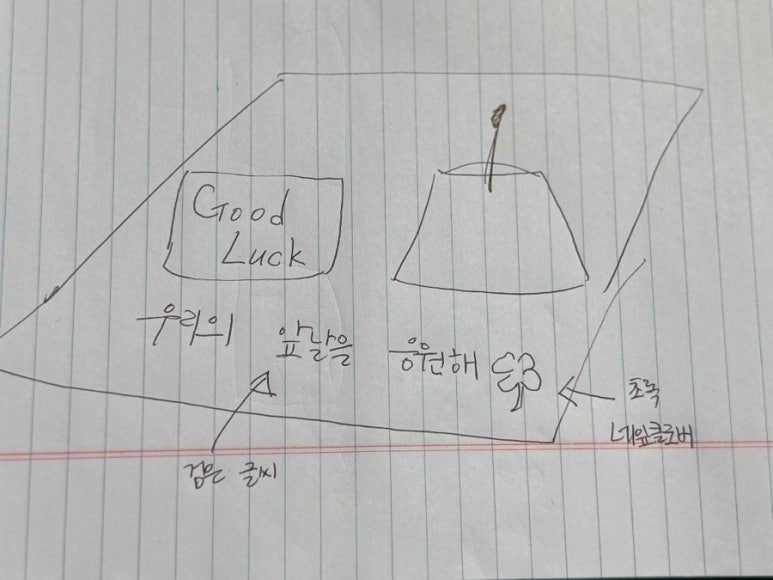 Good
Luck
우리의 앞날을 응원해
초록
네잎클로버
검은 글씨